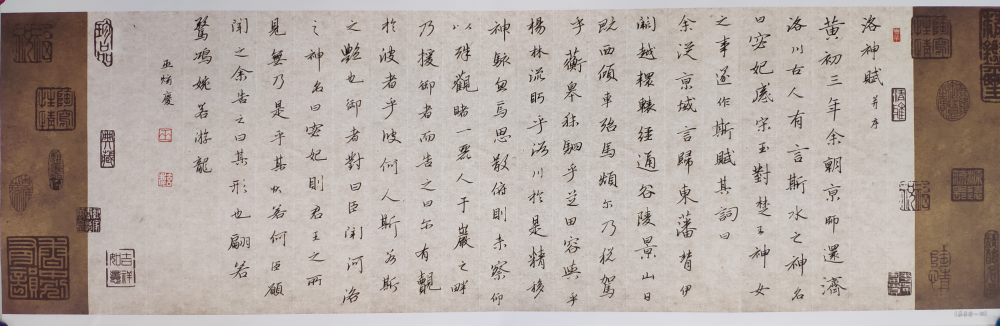 洛神賦 并序
黃初三年余朝京師還濟
洛川古人有言斯水之神名
曰宓妃感宋玉對楚王神女
之事遂作斯賦其詞曰
余從京域言歸東藩背伊
闕越轘轅經通谷陵景山日
既西傾車殆馬煩尓乃税駕
乎蘅皋秣駟乎芝田容與乎
楊林流眄乎洛川於是精移
神駭忽焉思散俯則未察仰
以殊觀睹一麗人于巖之畔
乃援御者而告之曰尓有覿
於彼者乎彼何人斯若斯
之艷也御者對曰臣聞河洛
之神名曰宓妃則君王之所
見無乃是乎其狀若何臣願
聞之余告之曰其形也翩若
驚鴻婉若游龍
珍品
典藏
吉祥如意